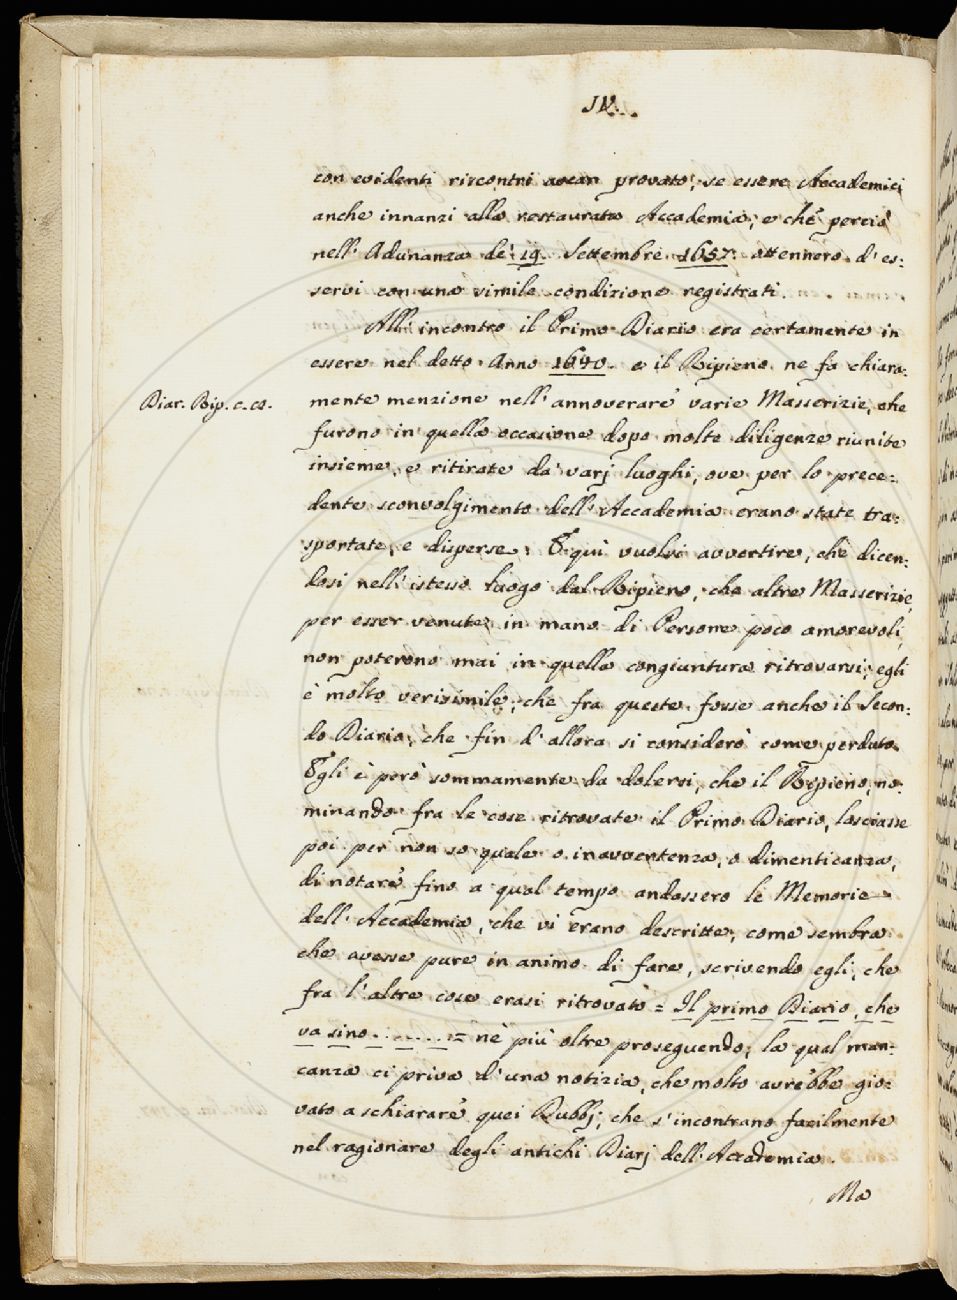 IV.
con evidenti riscontri avean provato, se essere Accademici
anche innanzi alla restaurata Accademia, e che perciò
nell' Adunanza de' 19. Settembre 1657. ottennero d' es:
servi con una simile condizione registrati.
All' incontro il Primo Diario era certamente in
essere nel detto Anno 1640. e il Ripieno ne fa chiara:
Diar. Rip. c. 62.
mente menzione nell' annoverare varie Masserizie, che
furono in quella occasione dopo molte diligenze riunite
insieme, e ritirate da varj luoghi, ove per lo prece:
dente sconvolgimento dell' Accademia erano state tra:
sportate, e disperse. E qui vuolsi avvertire, che dicen:
dosi nell' istesso luogo dal Ripieno, che altre Masserizie,
per esser venute in mano di Persone poco amorevoli,
non poterono mai in quella congiuntura ritrovarsi; egli
è molto verisimile, che fra queste fosse anche il Secon:
do Diario, che fin d' allora si considerò come perduto.
Egli è però sommamente da dolersi, che il Ripieno, no:
minando fra le cose ritrovate il Primo Diario, lasciasse
poi per non so quale o inavvertenza, o dimenticanza,
di notare fino a qual tempo andassero le Memorie
dell' Accademia, che vi erano descritte, come sembra
che avesse pure in animo di fare, scrivendo egli, che
fra l' altre cose erasi ritrovato = Il primo Diario, che
va sino . . . . . . = nè più oltre proseguendo; la qual man:
canza ci priva d' una notizia, che molto avrebbe gio:
vato a schiarare quei Dubbj, che s' incontrano facilmente
nel ragionare degli antichi Diarj dell' Accademia.
Ma